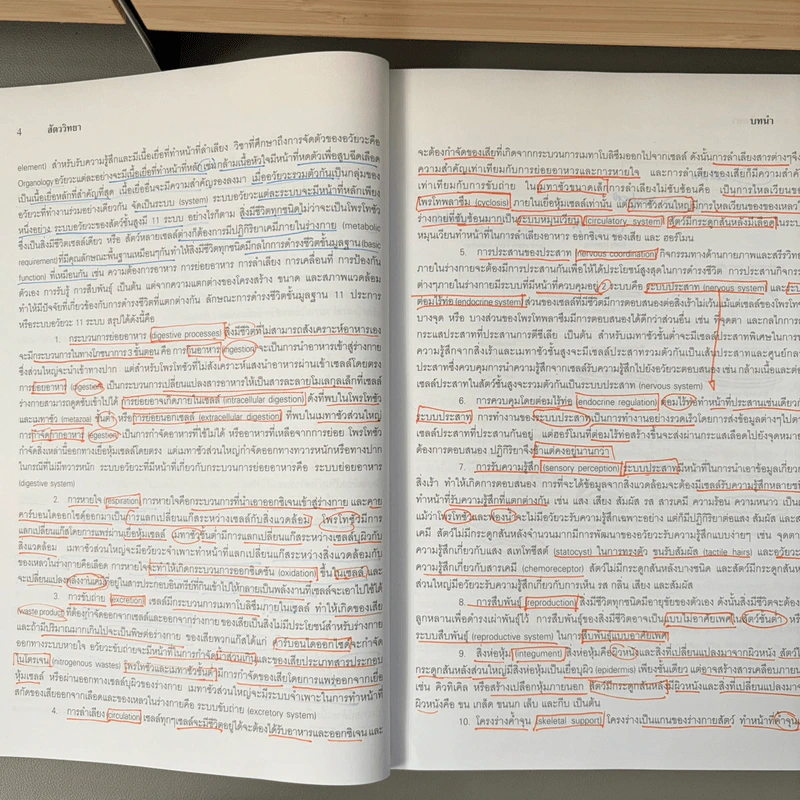 4 สัตววิทยา
element) สำหรับรับความรู้สึกและมีเนื้อเยื่อที่ทำหน้าที่ลำเลียง วิชาที่ศึกษาถึงการจัดตัวของอวัยวะคือ
Organology อวัยวะแต่ละอย่างจะมีเนื้อเยื่อที่ทำหน้าที่หลัก เช่น กล้ามเนื้อหัวใจมีหน้าที่หดตัวเพื่อสูบฉีดเลือด
เป็นเนื้อเยื่อหลักที่สำคัญที่สุด เนื้อเยื่ออื่นจะมีความสำคัญรองลงมา เมื่ออวัยวะรวมตัวกันเป็นกลุ่มของ
อวัยวะที่ทำงานร่วมอย่างเดียวกัน จัดเป็นระบบ (system) ระบบอวัยวะแต่ละระบบจะมีหน้าที่หลักเพียง
หนึ่งอย่าง ระบบอวัยวะของสัตว์ชั้นสูงมี 11 ระบบ อย่างไรก็ตาม สิ่งมีชีวิตทุกชนิดไม่ว่าจะเป็นโพรโทซัว
ซึ่งเป็นสิ่งมีชีวิตเซลล์เดียว หรือ สัตว์หลายเซลล์ต่างก็ต้องการมีปฏิกิริยาเคมีภายในร่างกาย (metabolic
requirement) ที่มีคุณลักษณะพื้นฐานเหมือนๆกันทำให้สิ่งมีชีวิตทุกชนิดมีกลไกการดำรงชีวิตขั้นมูลฐาน (basic
function) ที่เหมือนกัน เช่น ความต้องการอาหาร การย่อยอาหาร การลำเลียง การเคลื่อนที่ การป้องกัน
ตัวเอง การรับรู้ การสืบพันธุ์ เป็นต้น แต่จากความแตกต่างของโครงสร้าง ขนาด และสภาพแวดล้อม
ทำให้มีปัจจัยที่เกี่ยวข้องกับการดำรงชีวิตที่แตกต่างกัน ลักษณะการดำรงชีวิตขั้นมูลฐาน 11 ประการ
หรือระบบอวัยวะ 11 ระบบ สรุปได้ดังนี้คือ
1. กระบวนการย่อยอาหาร (digestive processes) สิ่งมีชีวิตที่ไม่สามารถสังเคราะห์อาหารเอง
จะมีกระบวนการในทางโภชนาการ 3 ขั้นตอน คือ การกินอาหาร (ingestion) จะเป็นการนำอาหารเข้าสู่ร่างกาย
ซึ่งส่วนใหญ่จะนำเข้าทางปาก แต่สำหรับโพรโทซัวที่ไม่สังเคราะห์แสงนำอาหารผ่านเข้าเซลล์โดยตรง
การย่อยอาหาร (digestion) เป็นกระบวนการเปลี่ยนแปลงสารอาหารให้เป็นสารละลายโมเลกุลเล็กที่เซลล์
ร่างกายสามารถดูดซับเข้าไปได้ การย่อยอาจเกิดภายในเซลล์ (intracellular digestion) ดังที่พบในโพรโทซัว
และเมทาซัว (metazoa) ชั้นต่ำ หรือการย่อยนอกเซลล์ (extracellular digestion) ที่พบในเมทาซัวส่วนใหญ่
การกำจัดกากอาหาร (egestion) เป็นการกำจัดอาหารที่ใช้ไม่ได้ หรืออาหารที่เหลือจากการย่อย โพรโทซัว
กำจัดสิ่งเหล่านี้ออกทางเยื่อหุ้มเซลล์โดยตรง แต่เมทาซัวส่วนใหญ่กำจัดออกทางทวารหนักหรือทางปาก
ในกรณีที่ไม่มีทวารหนัก ระบบอวัยวะที่มีหน้าที่เกี่ยวกับกระบวนการย่อยอาหารคือ ระบบย่อยอาหาร
(digestive system)
2. การหายใจ (respiration) การหายใจคือกระบวนการที่นำเอาออกซิเจนเข้าสู่ร่างกาย และคาย
คาร์บอนไดออกไซด์ออกมาเป็นการแลกเปลี่ยนแก๊สระหว่างเซลล์กับสิ่งแวดล้อม โพรโทซัวมีการ
แลกเปลี่ยนแก๊สโดยการแพร่ผ่านเยื่อหุ้มเซลล์ เมทาซัวชั้นต่ำมีการแลกเปลี่ยนแก๊สระหว่างเซลล์บุผิวกับ
สิ่งแวดล้อม เมทาซัวส่วนใหญ่จะมีอวัยวะจำเพาะทำหน้าที่แลกเปลี่ยนแก๊สระหว่างสิ่งแวดล้อมกับ
ของเหลวในร่างกายคือเลือด การหายใจจะทำให้เกิดกระบวนการออกซิเดชัน (oxidation) ขึ้นในเซลล์ และ
จะเปลี่ยนแปลงพลังงานเคมีที่อยู่ในสารประกอบอินทรีย์ที่กินเข้าไปให้กลายเป็นพลังงานที่เซลล์จะเอาไปใช้ได้
3. การขับถ่าย (excretion) เซลล์มีกระบวนการเมทาโบลิซึมภายในเซลล์ ทำให้เกิดของเสีย
(waste product) ที่ต้องกำจัดออกจากเซลล์และออกจากร่างกาย ของเสียเป็นสิ่งไม่มีประโยชน์สำหรับร่างกาย
และถ้ามีปริมาณมากเกินไปจะเป็นพิษต่อร่างกาย ของเสียพวกแก๊สได้แก่ คาร์บอนไดออกไซด์จะกำจัด
ออกทางระบบหายใจ อวัยวะขับถ่ายจะมีหน้าที่ในการกำจัดน้ำส่วนเกินและของเสียประเภทสารประกอบ
ไนโตรเจน (nitrogenous wastes) โพรโทซัวและเมทาซัวชั้นต่ำมีการกำจัดของเสียโดยการแพร่ออกจากเยื่อ
หุ้มเซลล์ หรือผ่านออกทางเซลล์บุผิวของร่างกาย เมทาซัวส่วนใหญ่จะมีระบบจำเพาะในการทำหน้าที่
สกัดของเสียออกจากเลือดและของเหลวในร่างกายคือ ระบบขับถ่าย (excretory system)
4. การลำเลียง (circulation) เซลล์ทุกๆเซลล์จะมีชีวิตอยู่ได้จะต้องได้รับอาหารและออกซิเจน และ
บทนำ
จะต้องกำจัดของเสียที่เกิดจากระบวนการเมทาโบลิซึมออกไปจากเซลล์ ดังนั้นการลำเลียงสารต่างๆจึง
ความสำคัญเท่าเทียมกับการย่อยอาหารและการหายใจ และการลำเลียงของเสียก็มีความสำคัญ
เท่าเทียมกับการขับถ่าย ใน เมทาซัวขนาดเล็ก การลำเลียงไม่ซับซ้อนคือ เป็นการไหลเวียนของ
โพรโทพลาซึม (cyclosis) ภายในเยื่อหุ้มเซลล์เท่านั้น แต่เมทาซัวส่วนใหญ่มีการไหลเวียนของของเหลวใน
ร่างกายที่ซับซ้อนมากเป็นระบบหมุนเวียน (circulatory system) สัตว์มีกระดูกสันหลังมีเลือดในระบบ
หมุนเวียนทำหน้าที่ในการลำเลียงอาหาร ออกซิเจน ของเสีย และ ฮอร์โมน
5. การประสานของประสาท (nervous coordination) กิจกรรมทางด้านกายภาพและสรีรวิทยา
ภายในร่างกายจะต้องมีการประสานกันเพื่อให้ได้ประโยชน์สูงสุดในการดำรงชีวิต การประสานกิจกรรม
ต่างๆภายในร่างกายมีระบบที่มีหน้าที่ควบคุมอยู่ 2 ระบบคือ ระบบประสาท (nervous system) และระบบ
ต่อมไร้ท่อ (endocrine system) ส่วนของเซลล์ที่มีชีวิตมีการตอบสนองต่อสิ่งเร้าไม่เว้นแม้แต่เซลล์ของโพรโทซัว
บางจุด หรือ บางส่วนของโพรโทพลาซึมมีการตอบสนองได้ดีกว่าส่วนอื่น เช่น ที่จุดตา และกลไกการ
กระแสประสาทที่ประสานการตีซีเลีย เป็นต้น สำหรับเมทาซัวชั้นต่ำจะมีเซลล์ประสาทพิเศษในการ
ความรู้สึกจากสิ่งเร้าและเมทาซัวชั้นสูงจะมีเซลล์ประสาทรวมตัวกันเป็นเส้นประสาทและศูนย์กลาง
ประสาทซึ่งควบคุมการนำความรู้สึกจากเซลล์รับความรู้สึกไปยังอวัยวะตอบสนอง เช่น กล้ามเนื้อและต่อม
เซลล์ประสาทในสัตว์ชั้นสูงจะรวมตัวกันเป็นระบบประสาท (nervous system)
6. การควบคุมโดยต่อมไร้ท่อ (endocrine regulation) ต่อมไร้ท่อทำหน้าที่ประสานเช่นเดียวกับ
ระบบประสาท การทำงานของระบบประสาทเป็นการทำงานอย่างรวดเร็วโดยการส่งข้อมูลต่างๆไปตาม
เซลล์ประสาทที่ประสานกันอยู่ แต่ฮอร์โมนที่ต่อมไร้ท่อสร้างขึ้นจะส่งผ่านกระแสเลือดไปยังจุดหมาย
ต้องการตอบสนอง ปฏิกิริยาจึงช้าแต่คงอยู่นานกว่า
7. การรับความรู้สึก (sensory perception) ระบบประสาทมีหน้าที่ในการนำเอาข้อมูลเกี่ยวกับ
สิ่งเร้า ทำให้เกิดการตอบสนอง การที่จะได้ข้อมูลจากสิ่งแวดล้อมจะต้องมีเซลล์รับความรู้สึกหลายชนิด
ทำหน้าที่รับความรู้สึกที่แตกต่างกัน เช่น แสง เสียง สัมผัส รส สารเคมี ความร้อน ความหนาว เป็น
แม้ว่าโพรโทซัวและฟองน้ำจะไม่มีอวัยวะรับความรู้สึกเฉพาะอย่าง แต่ก็มีปฏิกิริยาต่อแสง สัมผัส และ
เคมี สัตว์ไม่มีกระดูกสันหลังจำนวนมากมีการพัฒนาของอวัยวะรับความรู้สึกแบบง่ายๆ เช่น จุดตา
ความรู้สึกเกี่ยวกับแสง สเทโทซีสต์ (statocyst) ในการทรงตัว ขนรับสัมผัส (tactile hairs) และอวัยวะ
ความรู้สึกเกี่ยวกับสารเคมี (chemoreceptor) สัตว์ไม่มีกระดูกสันหลังบางชนิด และสัตว์มีกระดูกสันหลัง
ส่วนใหญ่มีอวัยวะรับความรู้สึกเกี่ยวกับการเห็น รส กลิ่น เสียง และสัมผัส
8. การสืบพันธุ์ (reproduction) สิ่งมีชีวิตทุกชนิดมีอายุขัยของตัวเอง ดังนั้นสิ่งมีชีวิตจะต้อง
ลูกหลานเพื่อดำรงเผ่าพันธุ์ไว้ การสืบพันธุ์ของสัตว์อาจเป็นแบบไม่อาศัยเพศในสัตว์ชั้นต่ำ หรือ
ระบบสืบพันธุ์ (reproductive system) ในการสืบพันธุ์แบบอาศัยเพศ
9. สิ่งห่อหุ้ม (integument) สิ่งห่อหุ้มคือผิวหนังและสิ่งที่เปลี่ยนแปลงมาจากผิวหนัง สัตว์ไม่
กระดูกสันหลังส่วนใหญ่มีสิ่งห่อหุ้มเป็นเยื่อบุผิว (epidermis) เพียงชั้นเดียว แต่อาจสร้างสารเคลือบภายนอก
เช่น คิวทิเคิล หรือสร้างเปลือกหุ้มภายนอก สัตว์มีกระดูกสันหลังมีผิวหนังและสิ่งที่เปลี่ยนแปลงมาจาก
ผิวหนังคือ ขน เกล็ด ขนนก เล็บ และกีบ เป็นต้น
10. โครงร่างค้ำจุน (skeletal support) โครงร่างเป็นแกนของร่างกายสัตว์ ทำหน้าที่ค้ำจุน